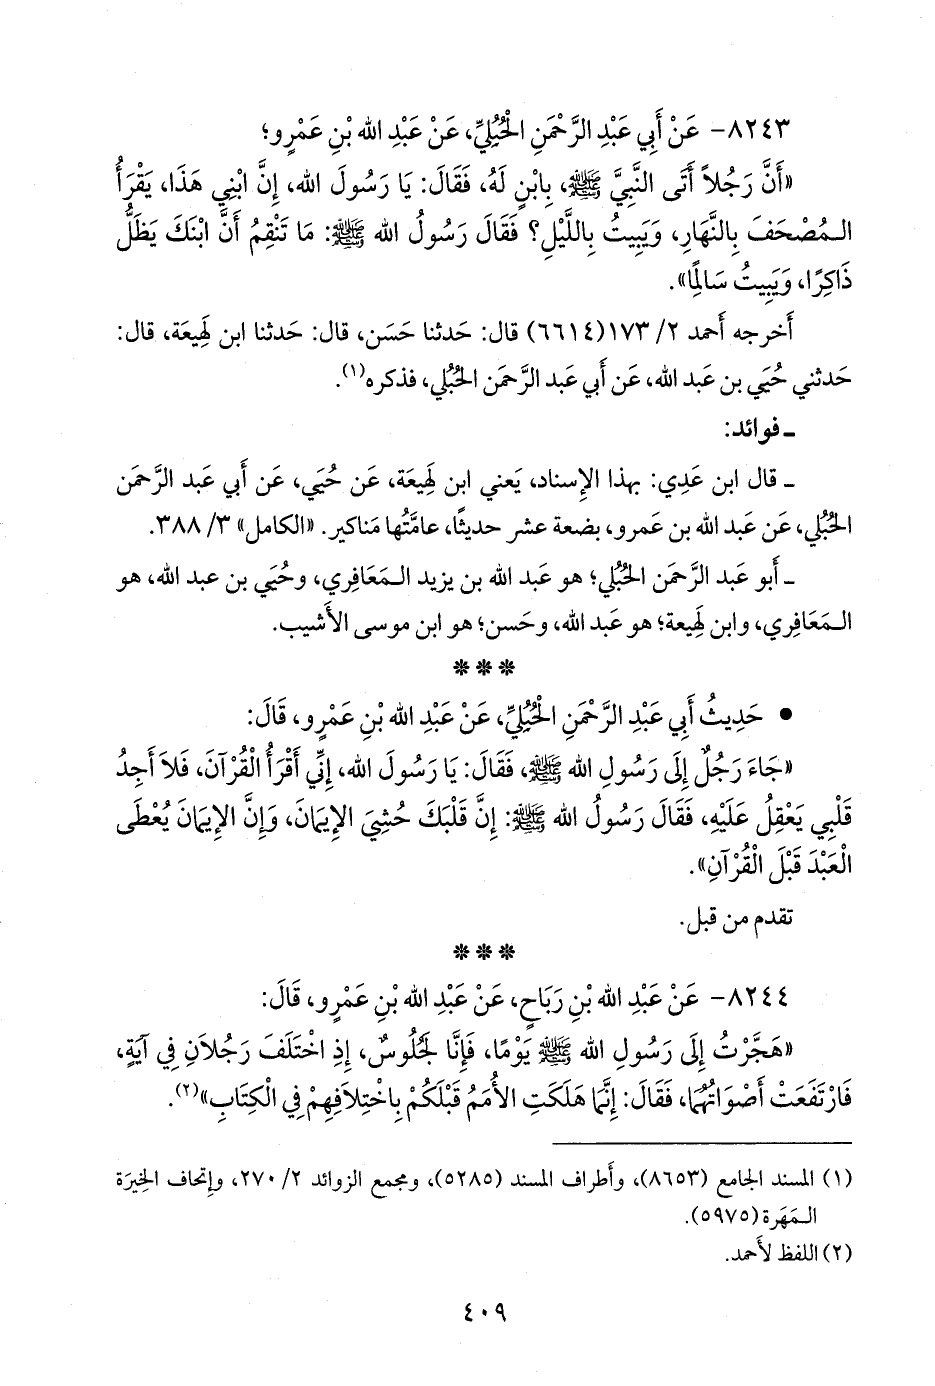 ٨٢٤٣- عَنْ أَبِي عَبْدِ الرَّحْمَنِ الْحُبُلِيِّ، عَنْ عَبْدِ الله بْنِ عَمْرٍو؛
«أَنَّ رَجُلاً أَتَى النَّبِيَّ ﷺ، بِابْنٍ لَهُ، فَقَالَ: يَا رَسُولَ الله، إِنَّ ابْنِي هَذَا، يَقْرَأُ
الـمُصْحَفَ بِالنَّهَارِ، وَيَبِيتُ بِاللَّيْلِ؟ فَقَالَ رَسُولُ الله ﷺ: مَا تَنْقِمُ أَنَّ ابْنَكَ يَظَلُّ
ذَاكِرًا، وَيَبِيتُ سَالِمًا».
أَخرجه أَحمد ٢/ ١٧٣(٦٦١٤) قال: حَدثنا حَسَن، قال: حَدثنا ابن لَهِيعَة، قال:
حَدثني حُيَي بن عَبد الله، عَن أَبي عَبد الرَّحمَن الحُبُلي، فذكره(١).
ـ فوائد:
ـ قال ابن عَدِي: بهذا الإِسناد، يَعني ابن لَهِيعَة، عَن حُيَي، عَن أَبي عَبد الرَّحمَن
الحُبُلي، عَن عَبد الله بن عَمرو، بضعة عشر حديثًا، عامَّتُها مَناكير. «الكامل» ٣/ ٣٨٨.
ـ أَبو عَبد الرَّحمَن الحُبُلي؛ هو عَبد الله بن يزيد الـمَعَافِري، وحُيَي بن عبد الله، هو
الـمَعَافِري، وابن لَهِيعة؛ هو عَبد الله، وحَسن؛ هو ابن موسى الأَشيب.
***
• حَدِيثُ أَبِي عَبْدِ الرَّحْمَنِ الْحُبُلِيِّ، عَنْ عَبْدِ الله بْنِ عَمْرٍو، قَالَ:
«جَاءَ رَجُلٌ إِلَى رَسُولِ الله ﷺ، فَقَالَ: يَا رَسُولَ الله، إِنِّي أَقْرَأُ الْقُرْآنَ، فَلاَ أَجِدُ
قَلْبِي يَعْقِلُ عَلَيْهِ، فَقَالَ رَسُولُ الله ﷺ: إِنَّ قَلْبَكَ حُشِيَ الإِيمَانَ، وَإِنَّ الإِيمَانَ يُعْطَى
الْعَبْدَ قَبْلَ الْقُرْآنِ».
تقدم من قبل.
***
٨٢٤٤- عَنْ عَبْدِ الله بْنِ رَبَاحٍ، عَنْ عَبْدِ الله بْنِ عَمْرٍو، قَالَ:
«هَجَّرْتُ إِلَى رَسُولِ الله ﷺ يَوْمًا، فَإِنَّا لَجُلُوسٌ، إِذِ اخْتَلَفَ رَجُلاَنِ فِي آيَةٍ،
فَارْتَفَعَتْ أَصْوَاتُهُمَا، فَقَالَ: إِنَّمَا هَلَكَتِ الأُمَمُ قَبْلَكُمْ بِاخْتِلاَفِهِمْ فِي الْكِتَابِ»(٢).
(١) المسند الجامع (٨٦٥٣)، وأَطراف المسند (٥٢٨٥)، ومجمع الزوائد ٢/ ٢٧٠، وإِتحاف الخِيرَة
الـمَهَرة (٥٩٧٥).
(٢) اللفظ لأَحمد.
٤٠٩